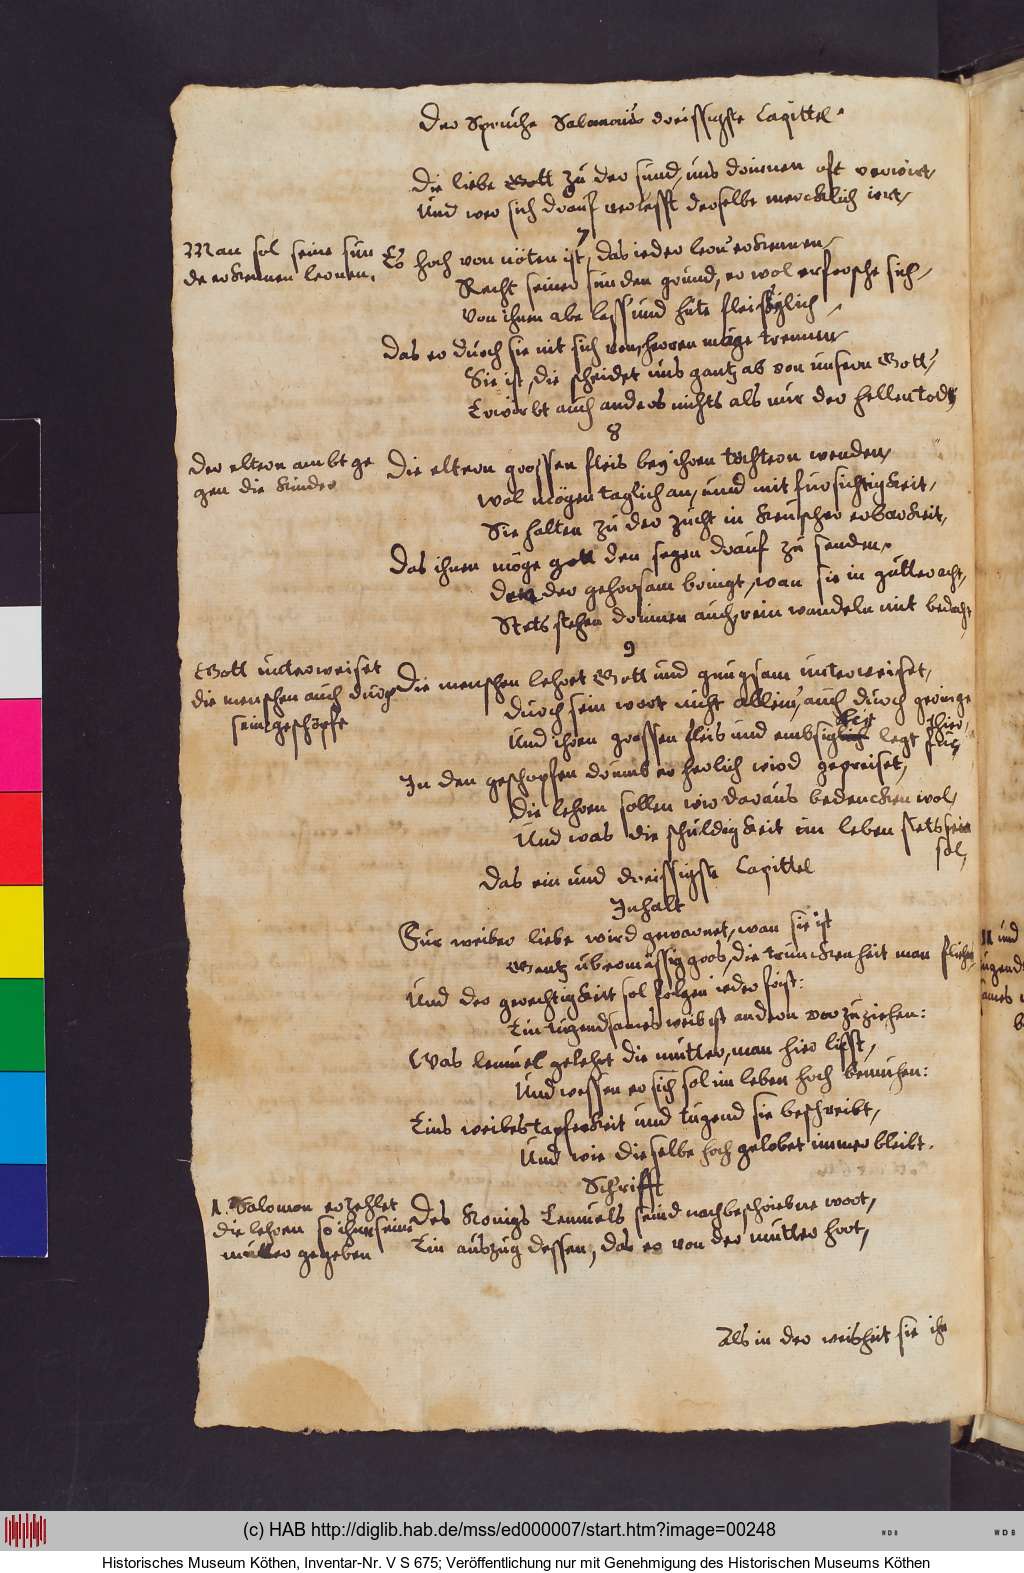 Der Spruche Salomonis dreissigste Capittel.
Die liebe Gott zu der sund, uns drinnen oft verwirt,
Und wer sich drauf verlesst derselbe mercklich irrt,
7
Man sol seine sun
de erkennen lernen.
Es hoch von nöten ist, das ieder lern erkennen,
Recht seiner sunden grund, er wol erforsche sich,
Von ihnen abe lass und hute fleissiglich,
Das er durch sie nit sich vom herren möge trennen
Sie ist, die scheidet uns gantz ab von unserm Gott,
Erwirbt auch anders nichts als nur der hellen todt,
8
Der eltern ambt ge
gen die kinder
Die eltern grossen fleis bey ihren töchtern wenden,
wol mögen taglich an, und mit fursichtigkeit,
Sie halten zu der zucht in keuscher erbarkeit,
Das ihnen möge gott den segen drauf zu senden,
Den der gehorsam bringt, wan sie in gutter acht,
Stets stehen drinnen auch, rein wandeln mit bedacht,
9
Gott unterweiset
die menschen auch durch
sein geschöpfe
Die menschen lehret Gott und gnugsam unterweiset,
Durch sein wort nicht allein, auch durch geringe
thier,
Und ihren grossen fleis und embsigkeit legt fur,
In den geschopfen drumb er herlich wird gepreiset,
Die lehren sollen wir daraus bedencken wol,
Und was die schuldigkeit im leben stets sein
sol,
Das ein und dreissigste Capittel
Inhalt
Fur weiber liebe wird gewarnet, wan sie ist
Gantz ubermässig gros, die trunckenheit man fliehen
Und der gerechtigkeit sol folgen ieder frist:
Ein tugendsames weib ist andern vor zu ziehen:
Was lemuel gelehrt die mutter, man hier list,
Und wessen er sich sol im leben hoch bemuhen:
Eins weibes tapferkeit und tugend sie beschreibt,
Und wie dieselbe hoch gelobet immer bleibt.
Schrifft
1. Salomon erzehlet
die lehren so ihm seine
mutter gegeben
Des Konigs Lemuels seind nachbeschriebne wort,
Ein auszug dessen, das er von der mutter hort,
Als in der weisheit sie ihn
(c) HAB http://diglib.hab.de/mss/ed000007/start.htm?image=00248
Historisches Museum Köthen, Inventar-Nr. V S 675; Veröffentlichung nur mit Genehmigung des Historischen Museums Köthen